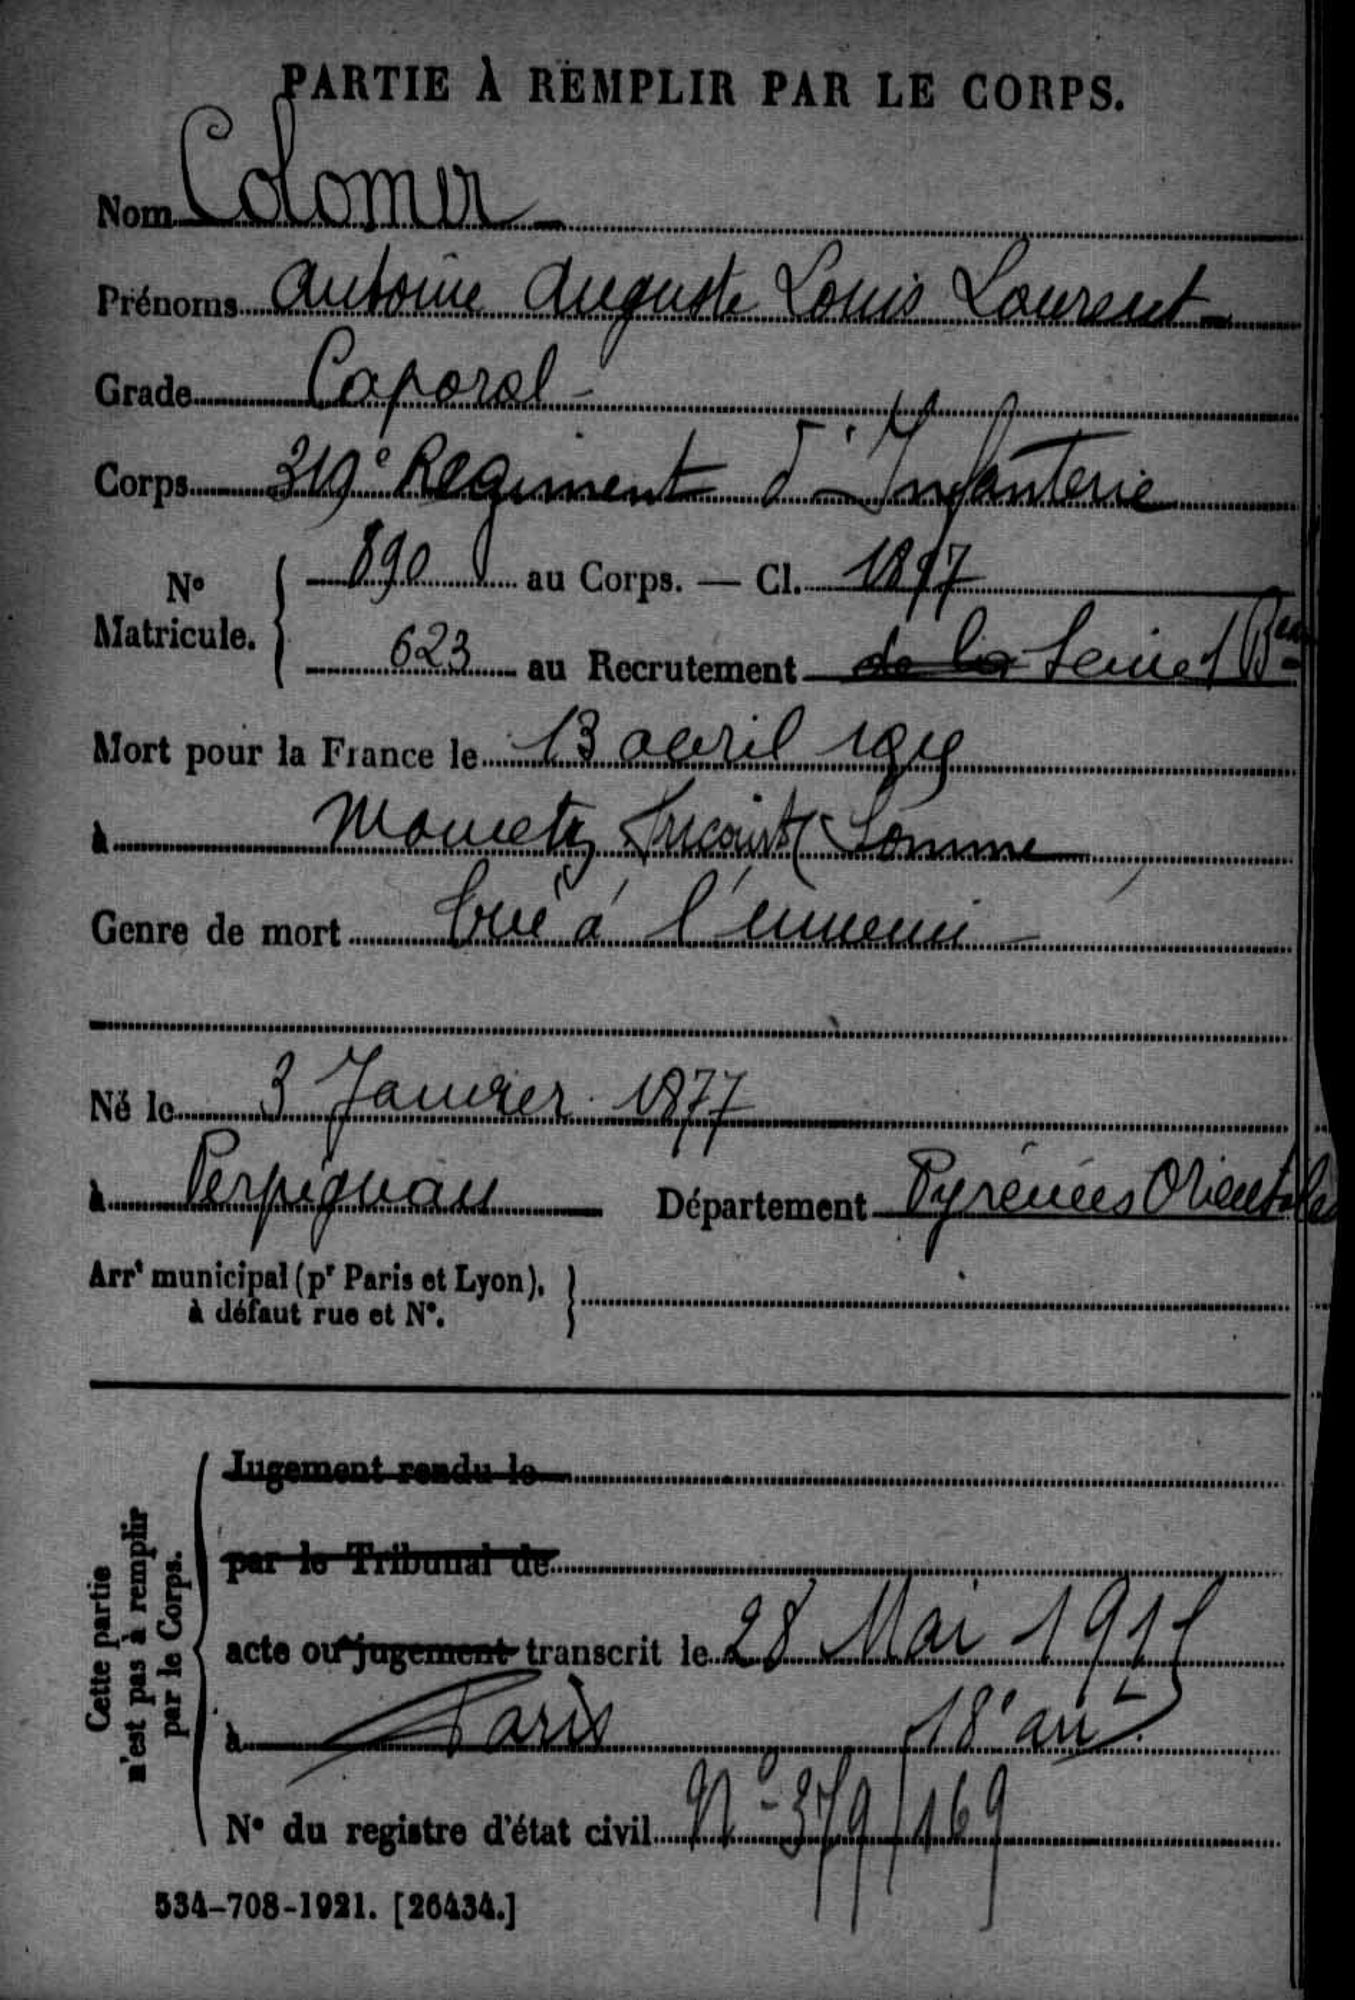 PARTIE À REMPLIR PAR LE CORPS.
Nom Colomer
Prénoms Antoine Auguste Louis Laurent
Grade Caporal
Corps 319e Régiment d'Infanterie
N° Matricule. { 890 au Corps. — Cl. 1897
623 au Recrutement de la Seine 1 Bau
Mort pour la France le 13 avril 1915
à Mametz Fricourt (Somme
Genre de mort Tué à l'ennemi
Né le 3 Janvier 1877
à Perpignan Département Pyrénées Orientales
Arrt municipal (pr Paris et Lyon),
à défaut rue et N°.
Cette partie
n'est pas à remplir
par le Corps.
Jugement rendu le
par le Tribunal de
acte ou jugement transcrit le 28 Mai 1915
à Paris 18e arrt
N° du registre d'état civil N° 379/169
534-708-1921. [26434.]